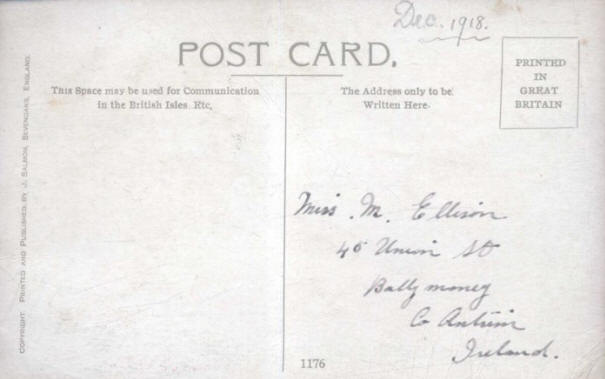 Dec. 1918.
POST CARD.
This Space may be used for Communication
in the British Isles Etc.
The Address only to be
Written Here.
PRINTED
IN
GREAT
BRITAIN
COPYRIGHT. PRINTED AND PUBLISHED BY J. SALMON, SEVENOAKS, ENGLAND.
Miss. M. Ellison
45 Union St
Ballymoney
Co Antrim
Ireland.
1176